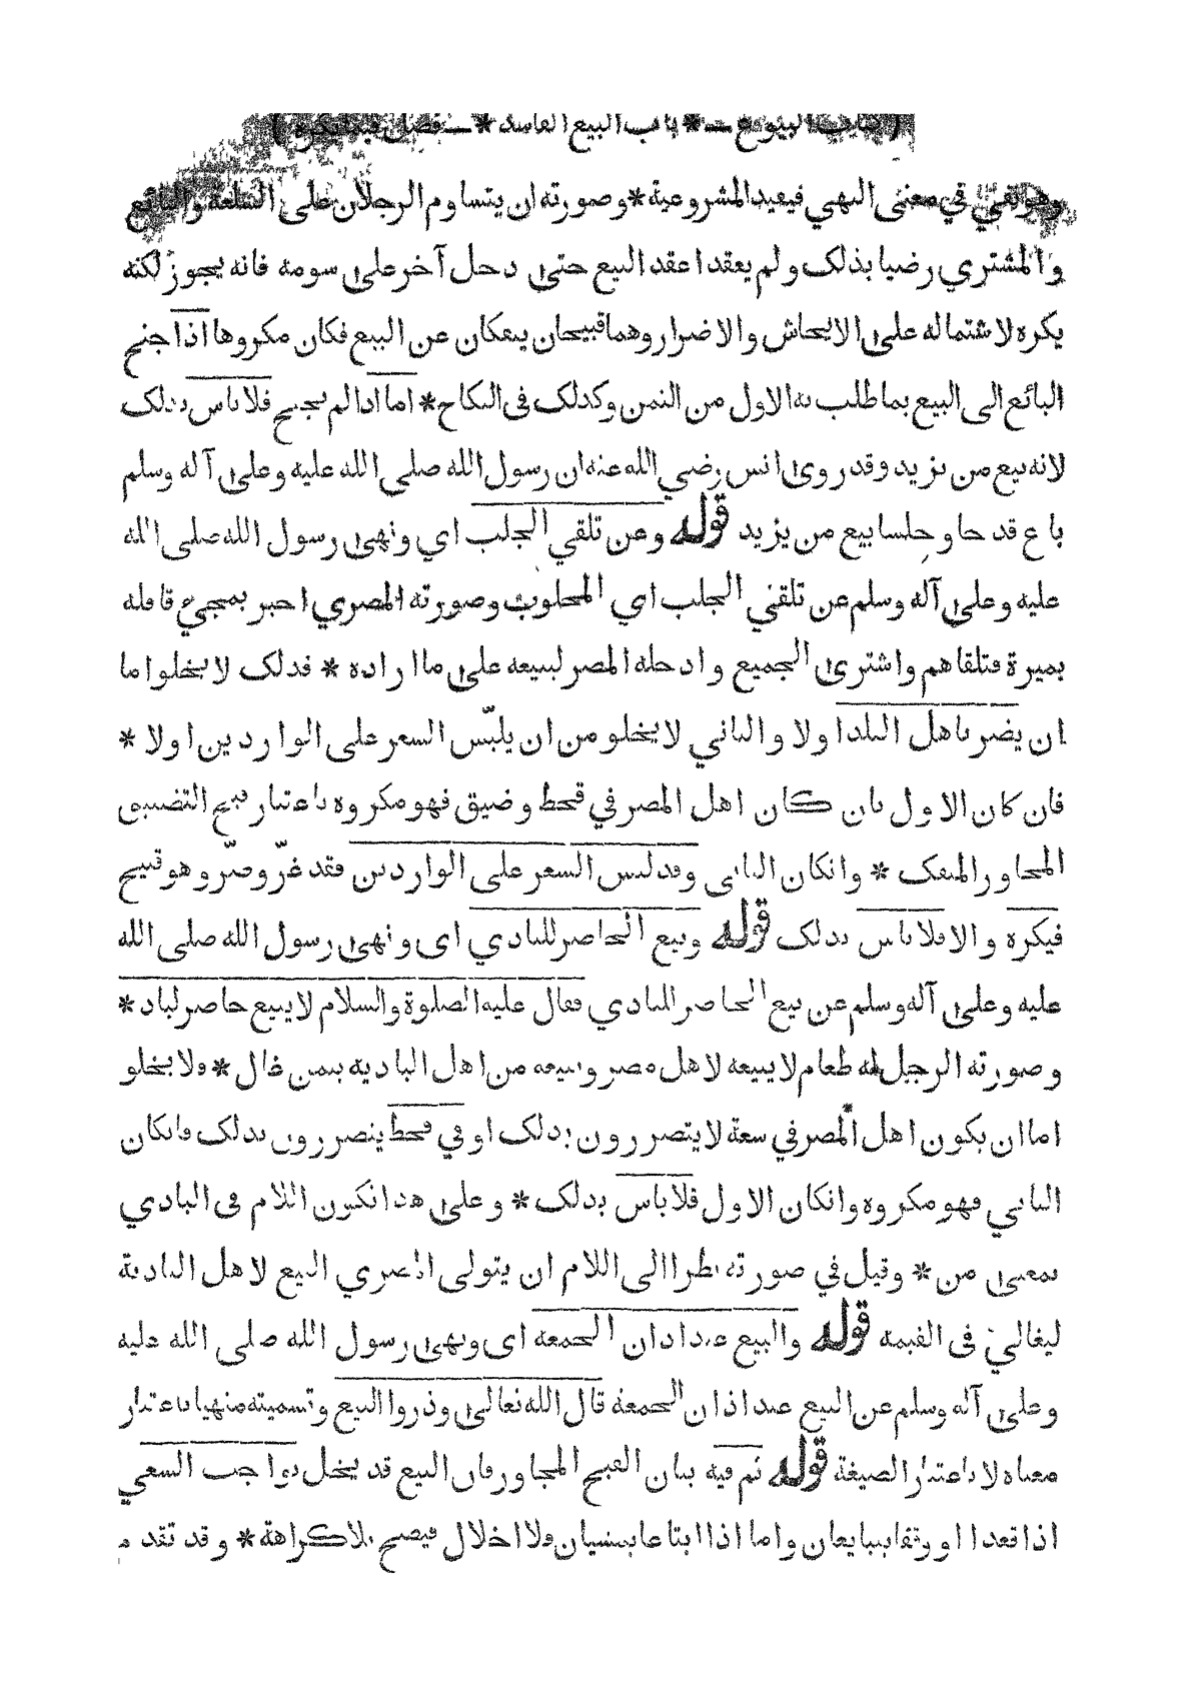 ( كتاب البيوع — * باب البيع الفاسد * — فصل فيما يكره )
وهو نفي في معنى النهي فيفيد المشروعية * وصورته ان يتساوم الرجلان على السلعة والبائع
والمشتري رضيا بذلك ولم يعقدا عقد البيع حتى دخل آخر على سومه فانه يجوز لكنه
يكره لاشتماله على الايحاش والاضرار وهما قبيحان ينفكان عن البيع فكان مكروها اذا جنح
البائع الى البيع بما طلب به الاول من الثمن وكذلك فى النكاح * اما اذا لم يجنح فلا باس بذلك
لانه بيع من يزيد وقد روى انس رضي الله عنه ان رسول الله صلى الله عليه وعلى آله وسلم
باع قدحا وحلسا بيع من يزيد قوله وعن تلقي الجلب اي ونهى رسول الله صلى الله
عليه وعلى آله وسلم عن تلقي الجلب اي المجلوب وصورته المصري اخبر بمجيء قافلة
بميرة فتلقاهم واشترى الجميع وادخله المصر لبيعه على ما اراده * فذلك لا يخلوا ما
ان يضر باهل البلد اولا والثاني لا يخلو من ان يلبّس السعر على الواردين اولا *
فان كان الاول بان كان اهل المصر في قحط وضيق فهو مكروه باعتبار قبح التضييق
المجاور المنفك * وانكان الثانى وقد لبس السعر على الواردين فقد غرّ وضرّ وهو قبيح
فيكره والا فلا باس بذلك قوله وبيع الحاضر للبادي اى ونهى رسول الله صلى الله
عليه وعلى آله وسلم عن بيع الحاضر للبادي فقال عليه الصلوة والسلام لا يبيع حاضر لباد *
وصورته الرجل له طعام لا يبيعه لاهل مصر وبيعه من اهل البادية بثمن غال * ولا يخلو
اما ان يكون اهل المصر في سعة لا يتضررون بذلك او في قحط يتضررون بذلك فانكان
الثاني فهو مكروه وانكان الاول فلا باس بذلك * وعلى هذا تكون اللام فى البادي
بمعنى من * وقيل في صورته نظرا الى اللام ان يتولى المصري البيع لاهل البادية
ليغالي فى القيمة قوله والبيع عند اذان الجمعة اى ونهى رسول الله صلى الله عليه
وعلى آله وسلم عن البيع عند اذان الجمعة قال الله تعالى وذروا البيع وتسميته منهيا باعتبار
معناه لا باعتبار الصيغة قوله ثم فيه بيان القبح المجاور فان البيع قد يخل بواجب السعي
اذا قعدا او وقفا يبيايعان واما اذا ابتاعا يمشيان فلا اخلال فيصح بلا كراهة * وقد تقدم